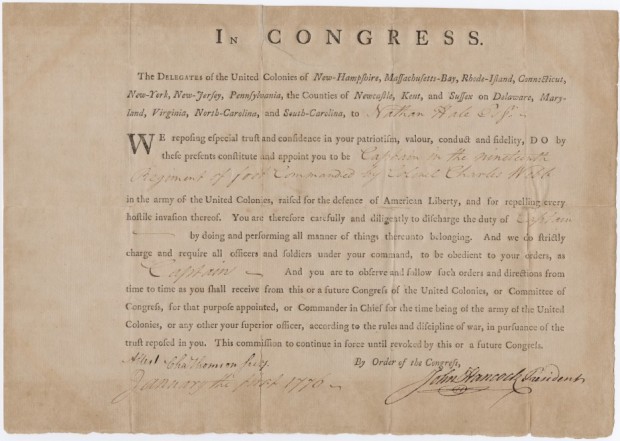 IN CONGRESS.
The DELEGATES of the United Colonies of New-Hampshire, Massachusetts-Bay, Rhode-Island, Connecticut,
New-York, New-Jersey, Pennsylvania, the Counties of Newcastle, Kent, and Sussex on Delaware, Mary-
land, Virginia, North-Carolina, and South-Carolina, to Nathan Hale Esqr.
WE reposing especial trust and confidence in your patriotism, valour, conduct and fidelity, DO by
these presents constitute and appoint you to be Captain in the nineteenth
Regiment of foot Commanded by Colonel Charles Webb
in the army of the United Colonies, raised for the defence of American Liberty, and for repelling every
hostile invasion thereof. You are therefore carefully and diligently to discharge the duty of Captain
by doing and performing all manner of things thereunto belonging. And we do strictly
charge and require all officers and soldiers under your command, to be obedient to your orders, as
Captain And you are to observe and follow such orders and directions from
time to time as you shall receive from this or a future Congress of the United Colonies, or Committee of
Congress, for that purpose appointed, or Commander in Chief for the time being of the army of the United
Colonies, or any other your superior officer, according to the rules and discipline of war, in pursuance of the
trust reposed in you. This commission to continue in force until revoked by this or a future Congress.
By Order of the Congress,
Attest Cha Thomson secy.
John Hancock President
January the first 1776